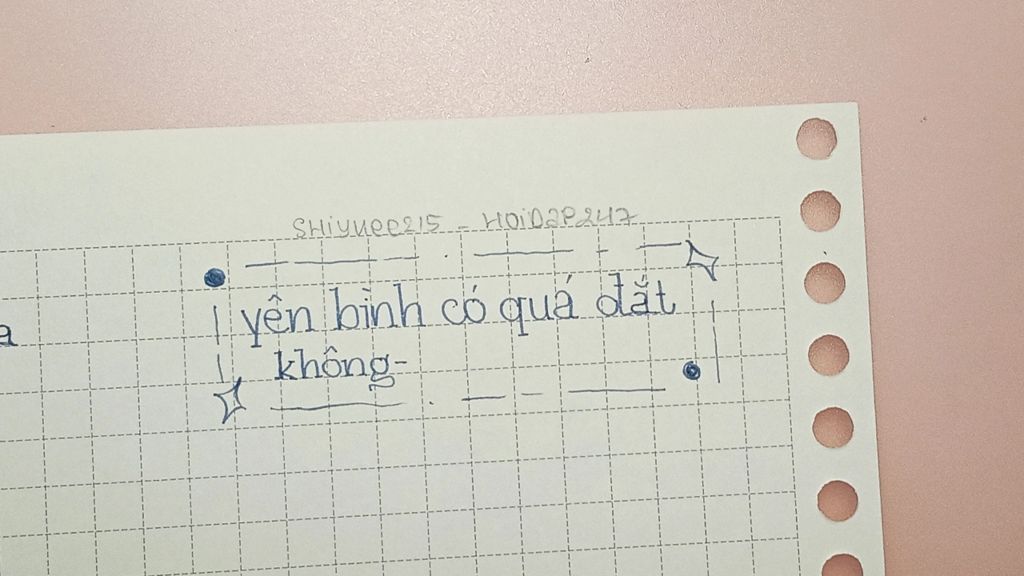 SHiyuee215 - HOiD2P247
yên bình có quá đắt
không-
a